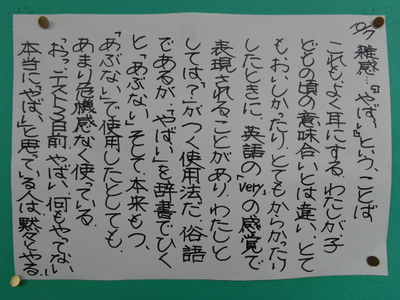 10/7 雑感…『やばい』という、ことば
これもよく耳にする。わたしが子
どもの頃の意味合いとは違い、とて
もおいしかったり、とてもからかったり
したときに、英語の"very"の感覚で
表現されることがあり、わたしと
しては?がつく使用法だ。俗語
であるが、「やばい」を辞書でひく
と、「あぶない」そして、本来もつ、
「あぶない」で使用したとしても、
あまり危機感なく使っている。
「おっ、テスト3日前、やばい、何もやってない」
本当に「やばい」と思っている人は、黙々とやる。